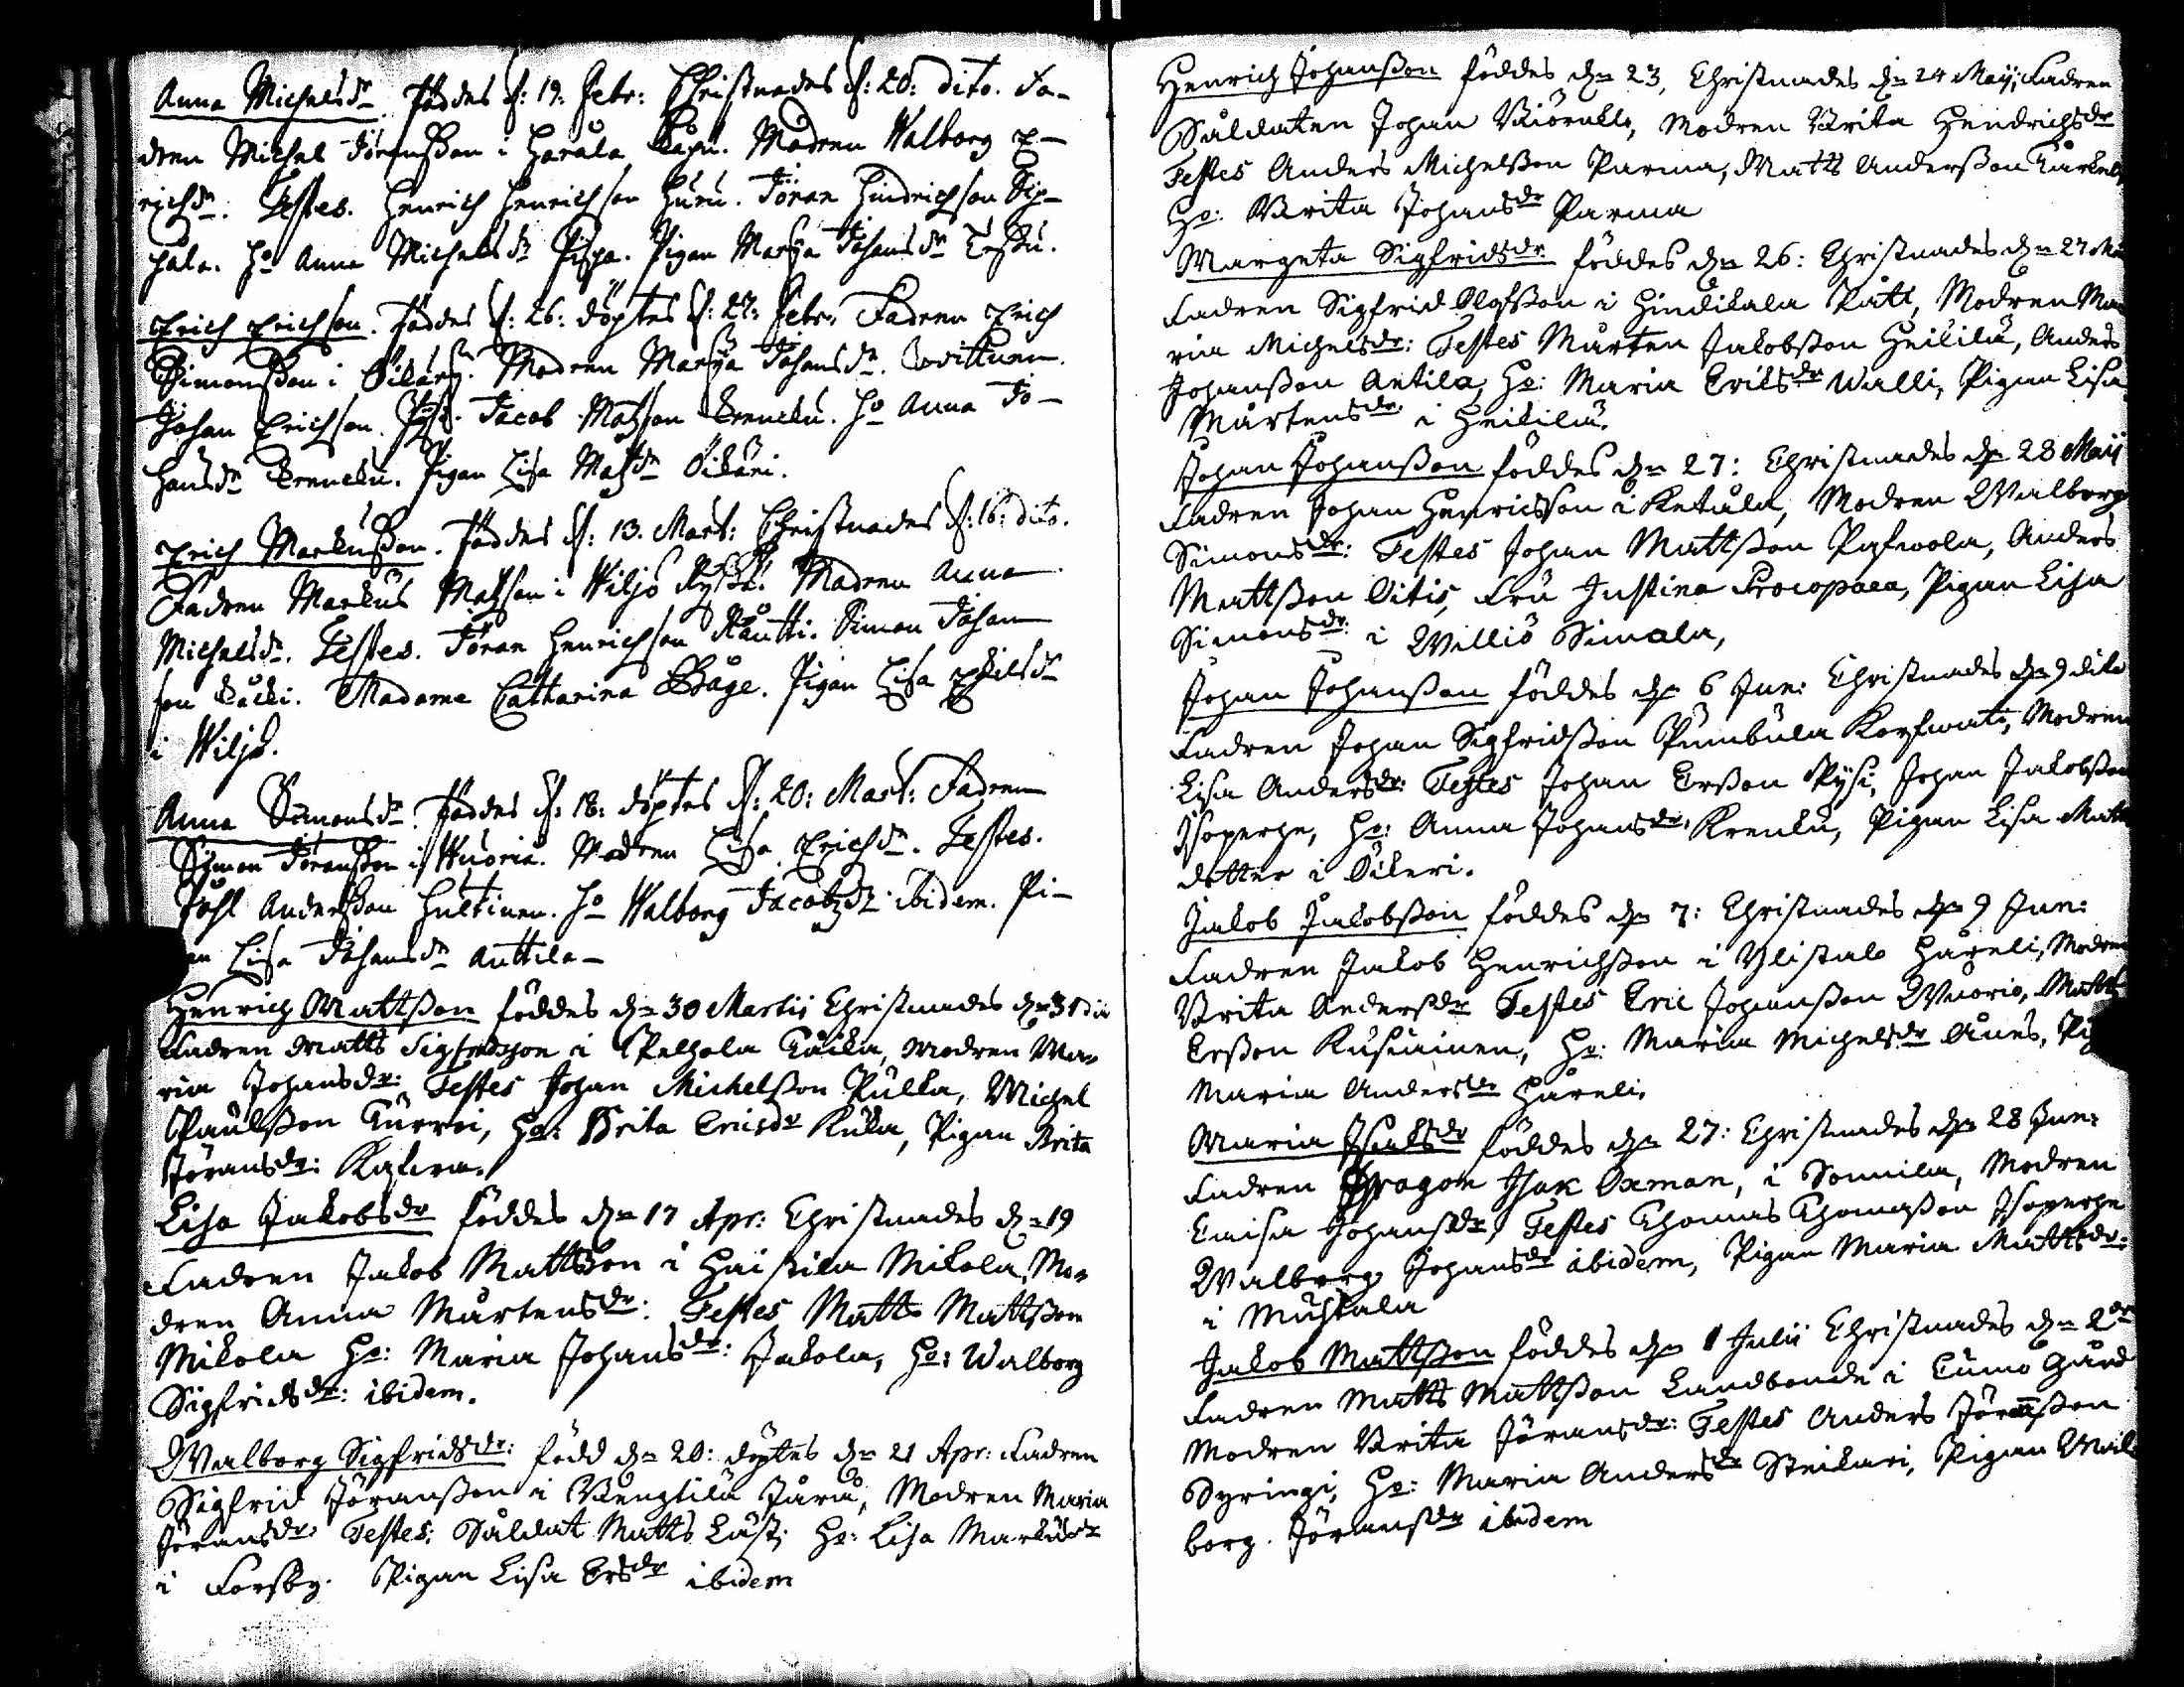 Anna Michelsdr. föddes d: 19: Febr: Christnades d: 20: dito. Fa-
dren Michel Jöransson i Harala. Modren Walborg E-
richdr. Testes. Henrich Henrichson Huru. Jöran Hindrichson Sip-
pala. Ho Anna Michelsdr Pispa. Pigan Marja Johansdr
Erich Erichson. föddes d: 26: döptes d: 27: Febr. Fadren Erich
Simonsson i Öikäri. Modren Marja Johansdr. Wittnen.
Johan Erichson. Pysi. Jacob Matzson Krencku. Ho Anna Jo-
hansdr Krencku. Pigan Lisa Matzdr Öikäri.
Erich Markusson. föddes d: 13. Mart: Christnades d: 16: dito.
Fadren Markus Matzson i Wiljo. Modren Anna
Michelsdr. Testes. Jöran Henrichson Rautti. Simon Johan
son. Madame Catharina Båge. Pigan Lisa
i Wiljo.
Anna Simonsdr. föddes d: 18: döptes d: 20: Mart: Fadren
Simon Jöransson i Wuoria. Modren Lisa Erichdr. Testes.
Andersson Hultinen. Ho Walborg Jacobzdr ibidem. Pi-
an Lisa Johansdr Anttila
Henrich Mattsson föddes dn 30 Martii Christnades dn 31
Fadren Matts Sigfridsson i Pelhola, Modren Ma-
ria Johansdr: Testes Johan Michelsson Pulka, Michel
Paulsson, Ho: Brita Ericsdr Kuka, Pigan Brita
Jöransdr:
Lisa Jakobsdr föddes dn 17 Apr: Christnades dn 19
Fadren Jakob Mattsson i Haikila Mikola, Mo-
dren Anna Mårtensdr: Testes Matts Mattsson
Mikola Ho: Maria Johansdr: Jakola, Ho: Walborg
Sigfridsdr: ibidem.
Walborg Sigfridsdr: född dn 20: döptes dn 21 Apr: Fadren
Sigfrid Jöransson i, Modren Maria
Jöransdr Testes: Soldat Matts Lust, Ho: Lisa Markusdr
i Forsby. Pigan Lisa Ersdr ibidem
Henrich Johansson föddes dn 23, Christnades dn 24 Maij; Fadren
Soldaten Johan, Modren Brita Hendrichsdr
Testes Anders Michelsson Parma, Matts Andersson
Ho: Brita Johansdr Parma
Margeta Sigfridsdr. föddes dn 26: Christnades dn 27
Fadren Sigfrid Olofsson i Hindikala Pått, Modren Ma
ria Michelsdr: Testes Mårten Jakobsson Heikilä, Anders
Johansson Antila, Ho: Maria Eriksdr Walli, Pigan Lisa
Mårtensdr i Heikilä.
Johan Johansson föddes dn 27: Christnades dn 28 Maij
Fadren Johan Henricsson i Ketula, Modren Walborg
Simonsdr: Testes Johan Mattsson, Anders
Mattsson Oitis, Fru Justina Procopaea, Pigan Lisa
Simonsdr: i Williö Simola,
Johan Johansson föddes dn 6 Jun: Christnades dn 9 dito
Fadren Johan Sigfridsson Pumbula, Modren
Lisa Andersdr: Testes Johan Ersson Pysi, Johan Jakobsson
Isoperhe, Ho: Anna Johansdr: Krenku, Pigan Lisa Matts
dotter i Öikeri.
Jakob Jakobsson föddes dn 7: Christnades dn 9 Jun:
Fadren Jakob Henrichsson i Ylistalo Håreli, Modren
Brita Andersdr Testes Eric Johansson Wuorio, Matts
Ersson Kusiainen, Ho: Maria Michelsdr, Pig
Maria Andersdr Håreli.
Maria Isaksdr föddes dn 27: Christnades dn 28 Jun:
Fadren Dragon Isak Oxman, i Sonnila, Modren
Caisa Johansdr, Testes Thomas Thomasson Isoperhe
Walborg Johansdr ibidem, Pigan Maria Mattsdr:
i Muhkala
Jakob Mattsson föddes dn 1 Julii Christnades dn 2dn
Fadren Matts Mattsson Landbonde i Cumo gård
Modren Brita Jöransdr: Testes Anders Jöransson
Syringi, Ho: Maria Andersdr Steikari, Pigan Wal
borg Jöransdr ibidem